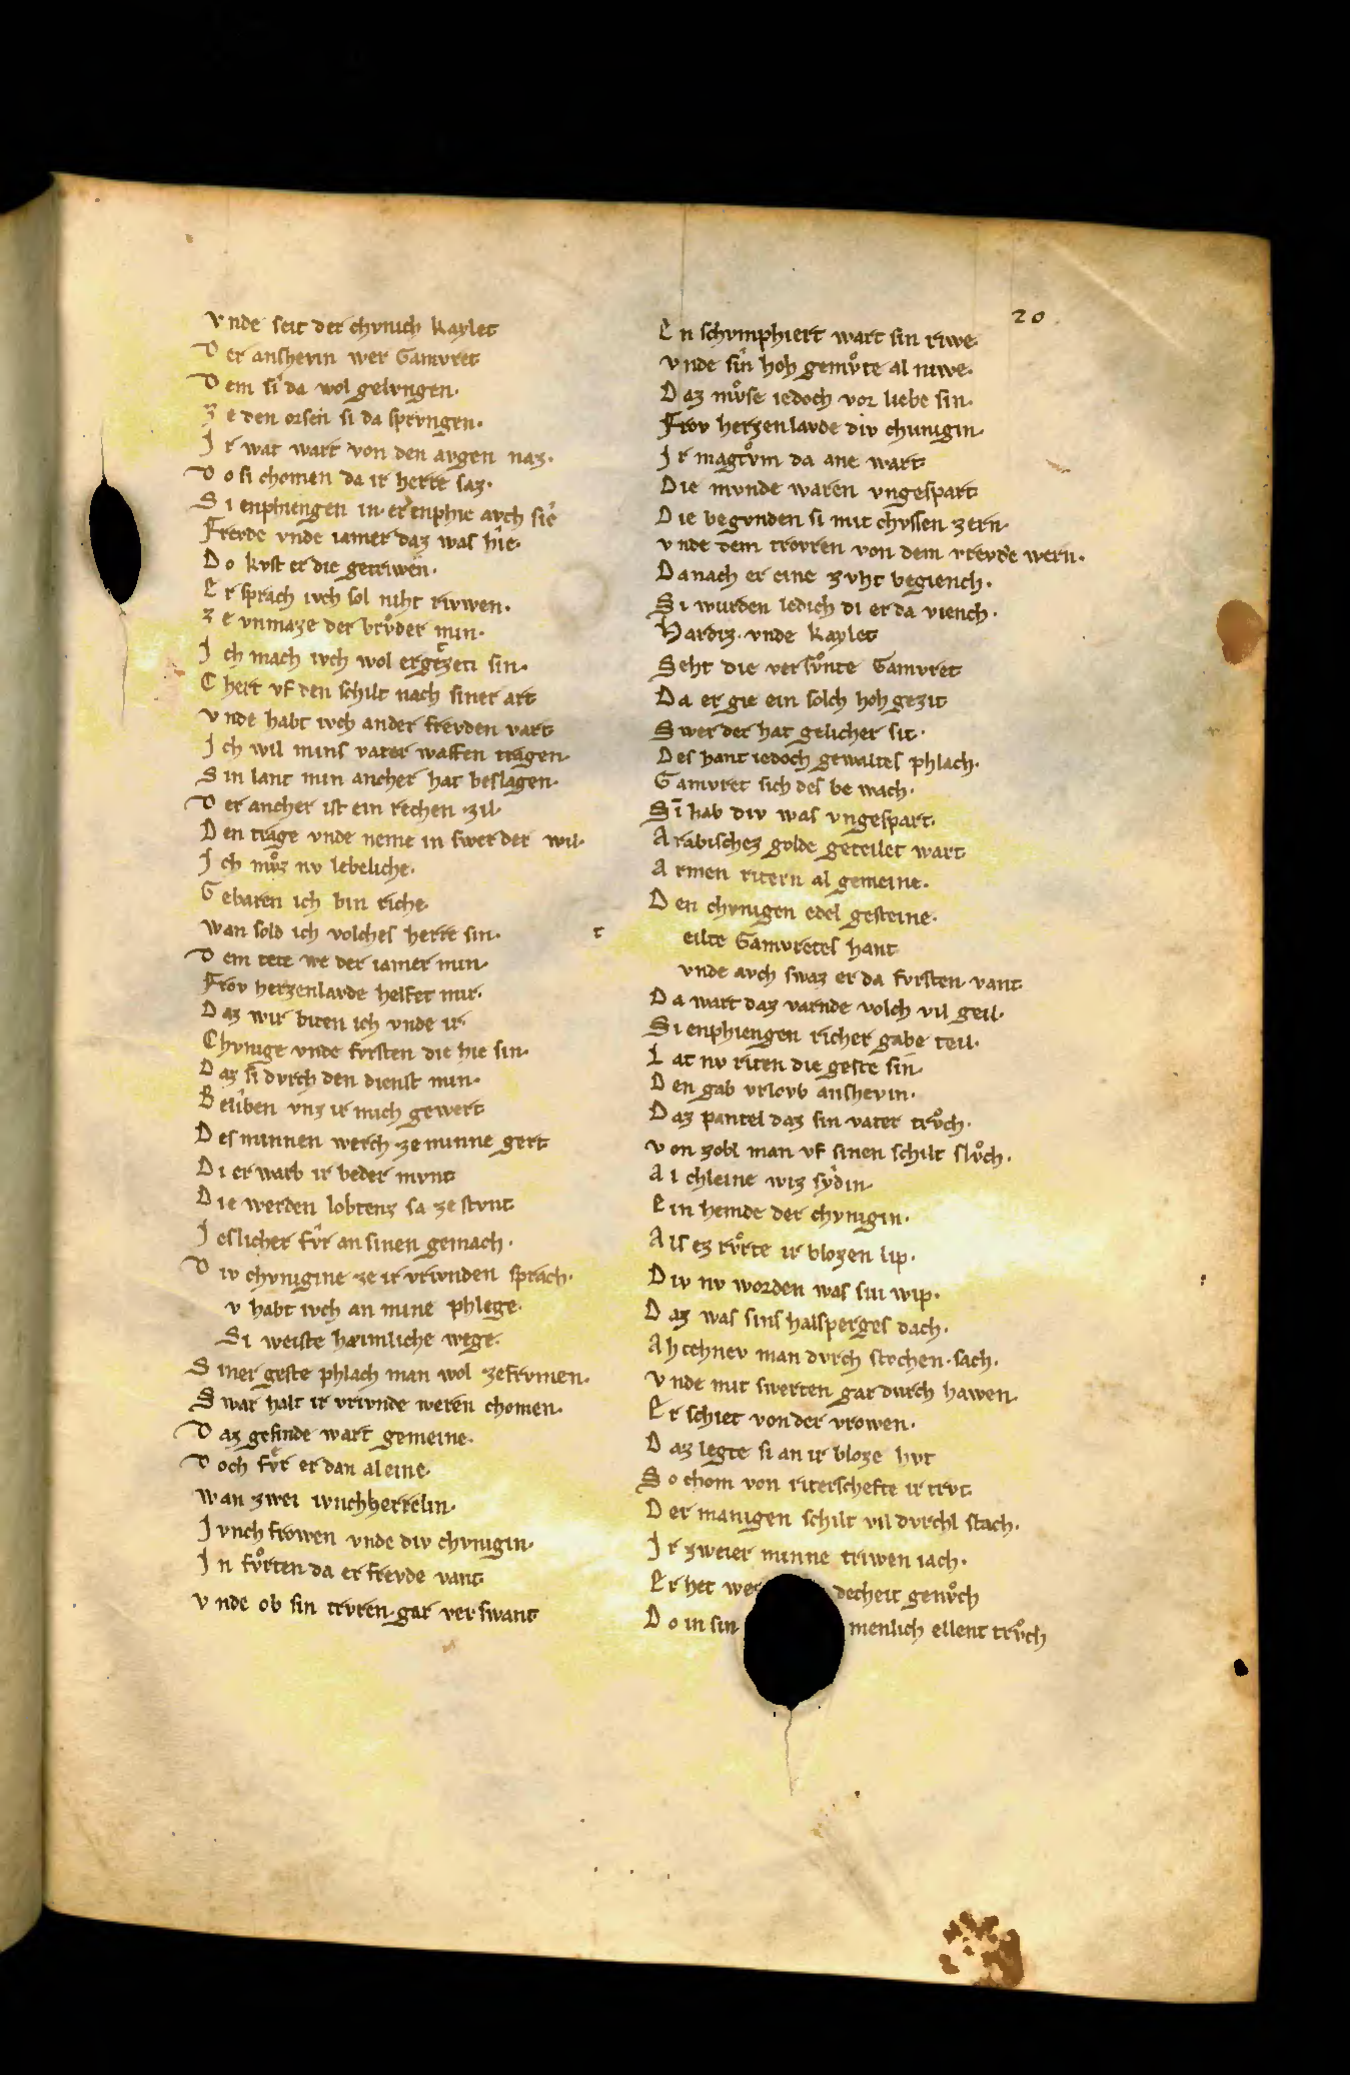 20
Vnde seit der chvnich kaylet
D er anshevin wer Gamvret
D em si da wol gelvngen.
Z e den orsen si da sprvngen.
J r wat wart von den avgen naz.
D o si chomen da ir herre saz.
S i enphiengen in. er enphie avch sie
Frevde vnde iamer daz was hie.
Do kvst er die getriwen.
E r sprach ivch sol niht rivwen.
Z e vnmaze der brvͦder min.
J ch mach ivch wol ergezen sin.
C hert vf den schilt nach siner art
V nde habt ivch an der frevden vart
J ch wil mins vater waffen tragen.
S in lant min ancher hat beslagen.
D er ancher ist ein rechen zil.
D en trage vnde neme in swer der wil.
J ch mvͦz nv lebeliche.
G ebaren ich bin riche.
Wan sold ich volches herre sin.
D em tete we der iamer min.
Frov herzenlavde helfet mir.
D az wir biten ich vnde ir.
Chvnige vnde fvrsten die hie sin.
D az si dvrch den dienst min.
B eliben vnz ir mich gewert
D es minnen werch ze minne gert
D i er warb ir beder mvnt
D ie werden lobtenz sa ze stvnt
J eslicher fvͦr an sinen gemach.
D iv chvnigine ze ir vrivnden sprach.
v habt ivch an mine phlege.
Si weiste hæimliche wege.
S iner geste phlach man wol ze frvmen.
S war halt ir vrivnde weren chomen.
D az gesinde wart gemeine.
D och fvͦr er dan al eine.
Wan zwei ivncherrelin.
J vnch frowen vnde div chvnigin.
J n fvͦrten da er frevde vant
V nde ob sin trvren gar verswant
E n schvmphiert wart sin riwe.
V nde sin hoh gemvͦte al niwe.
D az mvͦse iedoch vor liebe sin.
Frov herzenlavde div chunigin.
J r magtvͦm da ane wart
D ie mvnde waren vngespart
D ie begvnden si mit chvssen zern.
V nde dem trovren von dem vrevde wern.
D anach er eine zvht begiench.
S i wurden ledich di er da viench.
Hardiz. vnde kaylet
Seht die versvͦnte Gamvret
D a er gie ein solch hohgezit
S wer der hat gelicher sit.
D es hant iedoch gewaltes phlach.
G amvret sich des bewach.
Sin hab div was vngespart.
A rabisches golde geteilet wart
A rmen ritern al gemeine.
D en chvnigen edel gesteine.
t eilte Gamvretes hant
vnde avch swaz er da fvrsten vant
D a wart daz varnde volch vil geil.
S i enphiengen richer gabe teil.
L at nv riten die geste sin.
D en gab vrlovb anshevin.
D az pantel daz sin vater trvͦch.
V on zobl man vf sinen schilt slvͦch.
A l chleine wiz sydin.
E in hemde der chvnigin.
A ls ez rvͦrte ir blozen lip.
D iv nv worden was sin wip.
D az was sins halsperges dach.
A htehnev man dvrch stochen sach.
V nde mit swerten gar dvrch hawen.
E r schiet von der vrowen.
D az legte si an ir bloze hvt
S o chom von riterschefte ir trvt.
D er manigen schilt vil dvrchl stach.
J r zweier minne triwen iach.
E r het wer decheit genvͦch
D o in sin menlich ellent trvͦch